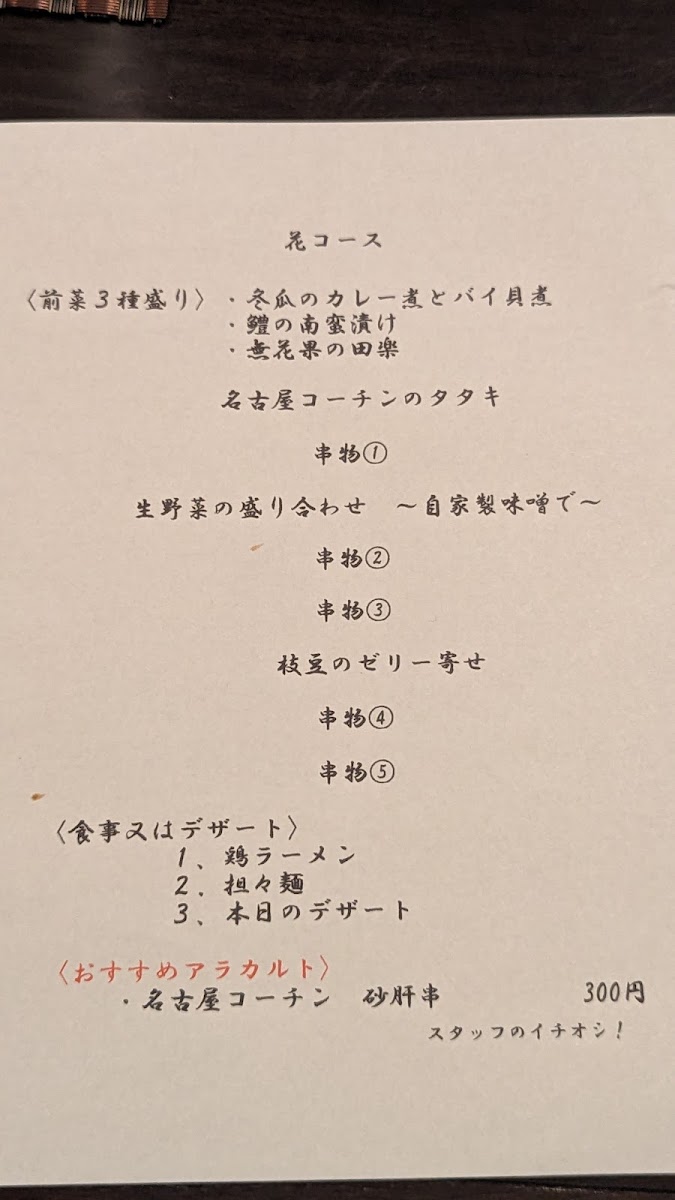 花コース
〈前菜３種盛り〉・冬瓜のカレー煮とバイ貝煮
・鱧の南蛮漬け
・無花果の田楽
名古屋コーチンのタタキ
串物①
生野菜の盛り合わせ　～自家製味噌で～
串物②
串物③
枝豆のゼリー寄せ
串物④
串物⑤
〈食事又はデザート〉
１、鶏ラーメン
２、担々麺
３、本日のデザート
〈おすすめアラカルト〉
・名古屋コーチン　砂肝串　300円
スタッフのイチオシ！